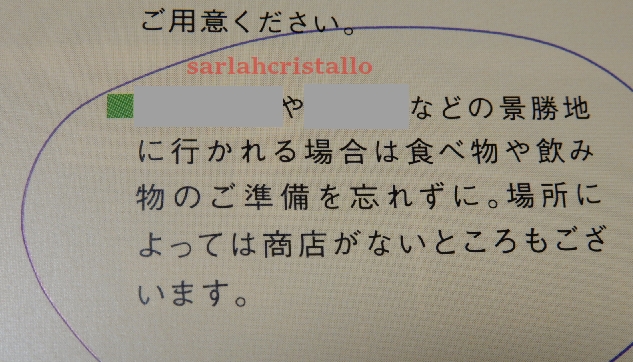 ご用意ください。
sarlahcristallo
や などの景勝地
に行かれる場合は食べ物や飲み
物のご準備を忘れずに。場所に
よっては商店がないところもござ
います。